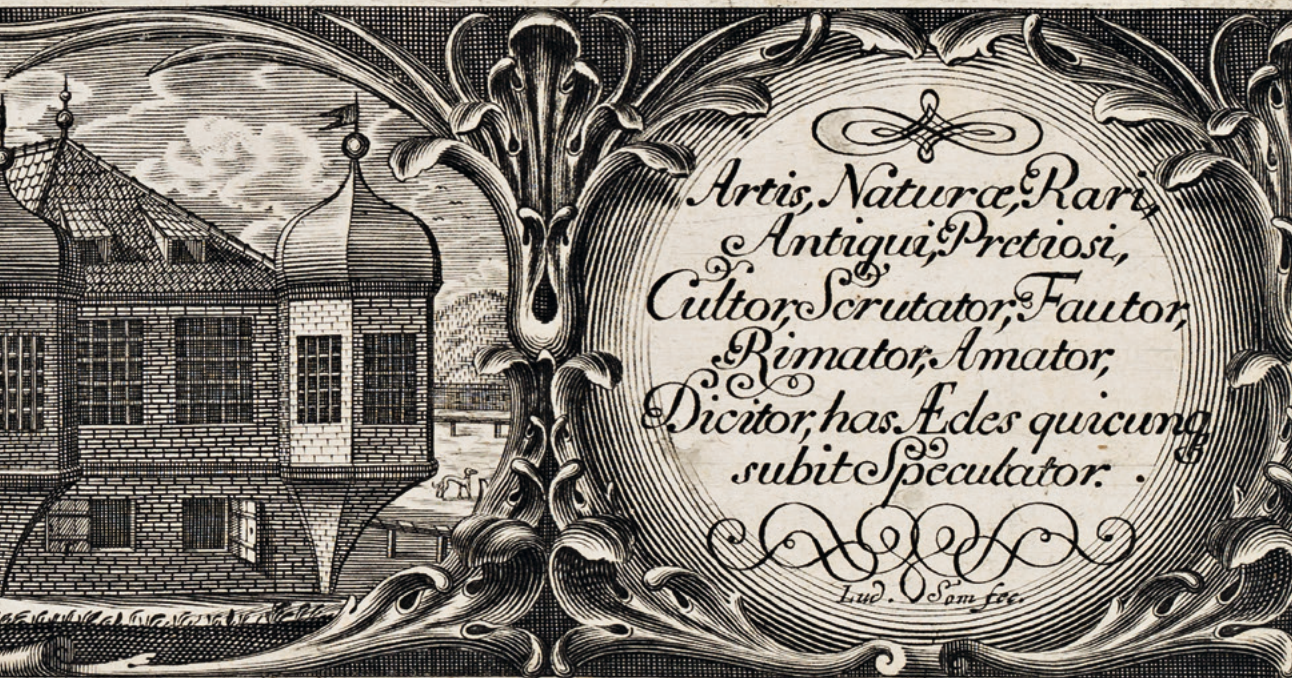 Artis, Naturæ, Rari,
Antiqui, Pretiosi,
Cultor, Scrutator, Fautor,
Rimator, Amator,
Dicitor, has Ædes quicunq
subit Speculator.
Lud. Som fec.